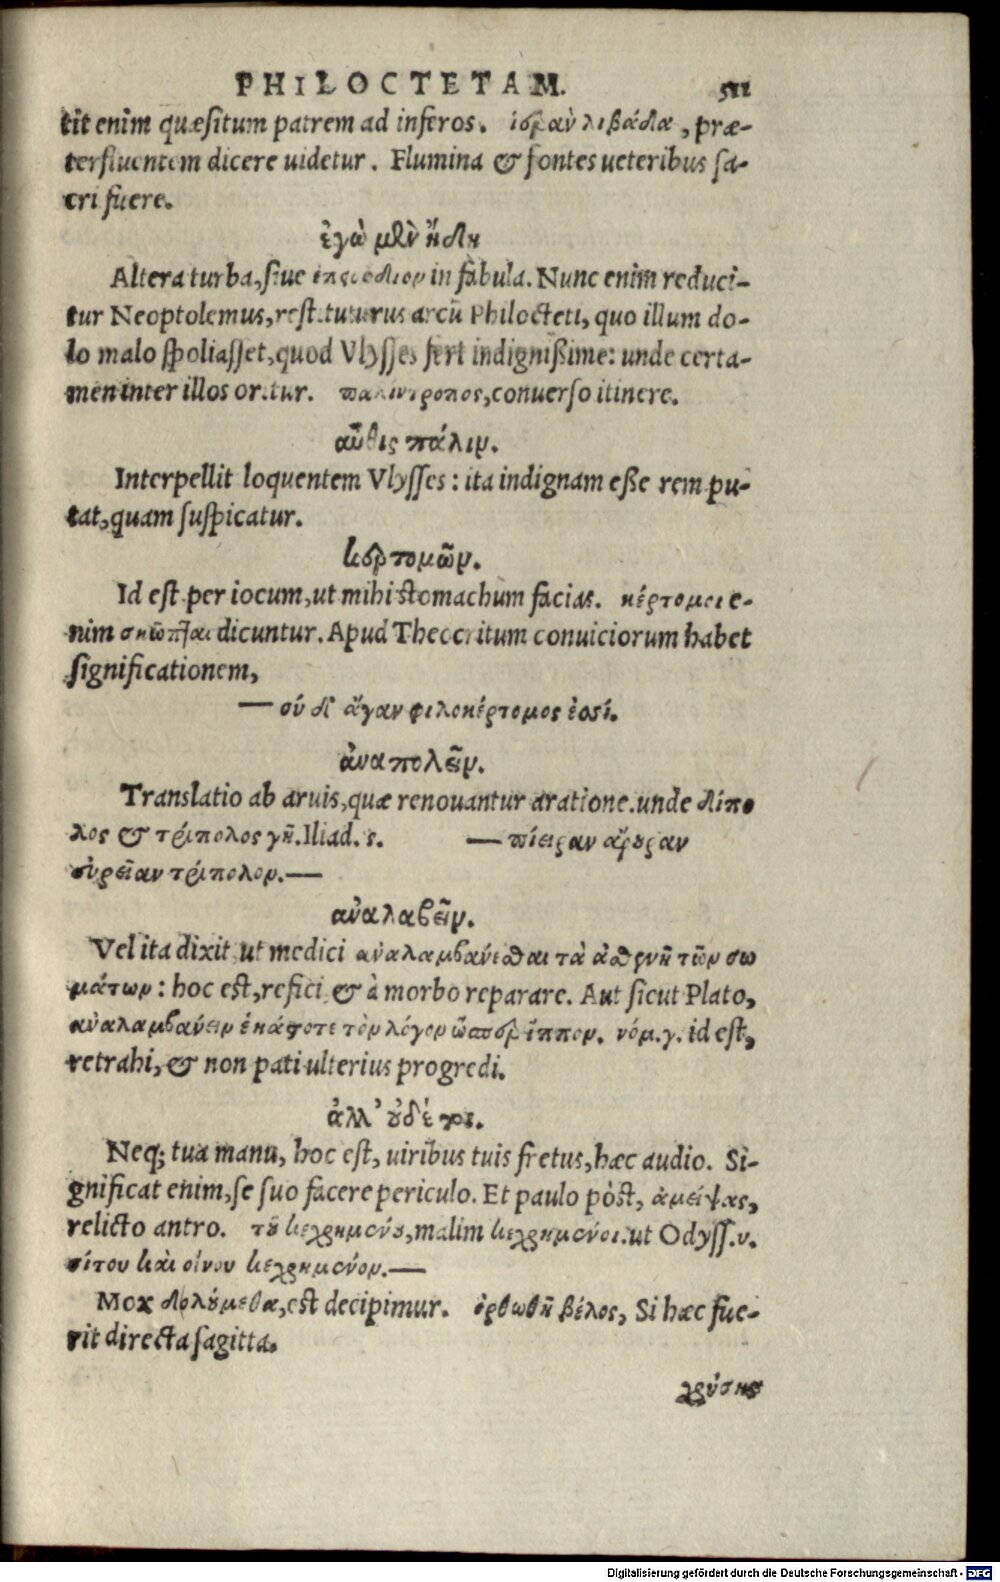 PHILOCTETAM. 511
tit enim quæsitum patrem ad inferos. ἱερὰν λιβάδα, præ-
terfluentem dicere uidetur. Flumina & fontes ueteribus sa-
cri fuere.
ἐγὼ μὲν ἤδη
Altera turba, siue ἐπεισόδιον in fabula. Nunc enim reduci-
tur Neoptolemus, restituturus arcū Philocteti, quo illum do-
lo malo spoliasset, quod Vlysses fert indignißime: unde certa-
men inter illos oritur. παλίντροπος, conuerso itinere.
αὖθις πάλιν.
Interpellit loquentem Vlysses: ita indignam eße rem pu-
tat, quam suspicatur.
κερτομῶν.
Id est per iocum, ut mihi stomachum facias. κέρτομοι e-
nim σκῶπται dicuntur. Apud Theocritum conuiciorum habet
significationem,
— σύ δ' ἄγαν φιλοκέρτομος ἐσσί.
ἀναπολεῖν.
Translatio ab aruis, quæ renouantur aratione. unde δίπο
λος & τρίπολος γῆ. Iliad. σ. — πίειραν ἄρουραν
εὐρεῖαν τρίπολον.—
ἀναλαβεῖν.
Vel ita dixit ut medici ἀναλαμβάνεσθαι τὰ ἀσθενῆ τῶν σω
μάτων: hoc est, refici & à morbo reparare. Aut sicut Plato,
ἀναλαμβάνειν ἑκάστοτε τὸν λόγον ὥσπερ ἵππον. νόμ. γ. id est,
retrahi, & non pati ulterius progredi.
ἀλλ' οὐδέ τοι.
Neq; tua manu, hoc est, uiribus tuis fretus, hæc audio. Si-
gnificat enim, se suo facere periculo. Et paulo pòst, ἀμείψας,
relicto antro. τοῦ κεχρημένου, malim κεχρημένοι. ut Odyss. υ.
σίτου καὶ οἴνου κεχρημένον.—
Mox δολούμεθα, est decipimur. ὀρθωθῇ βέλος, Si hæc fue-
rit directa sagitta.
χρύσης
Digitalisierung gefördert durch die Deutsche Forschungsgemeinschaft - DFG